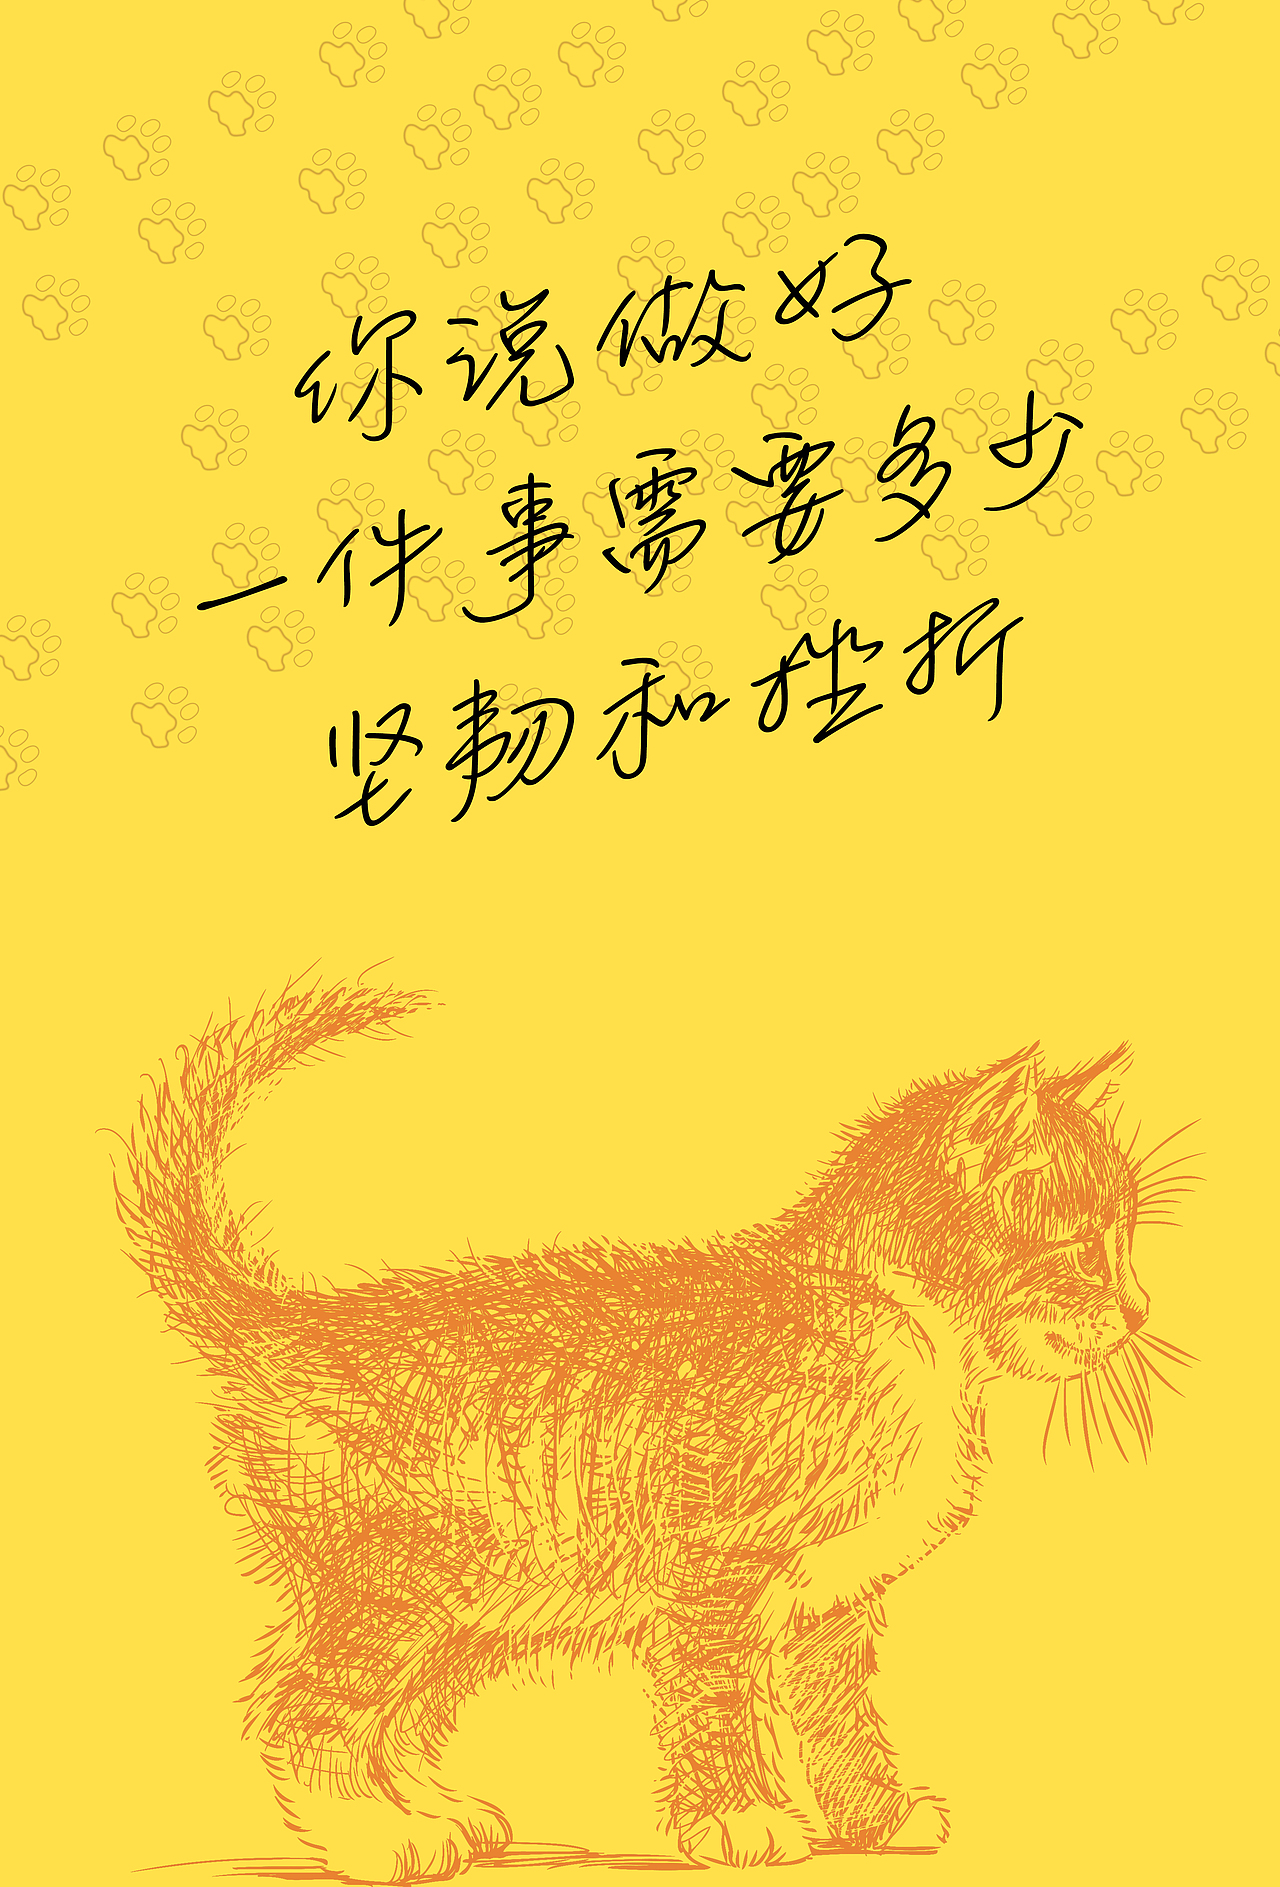 你说做好
一件事需要多少
坚韧和挫折